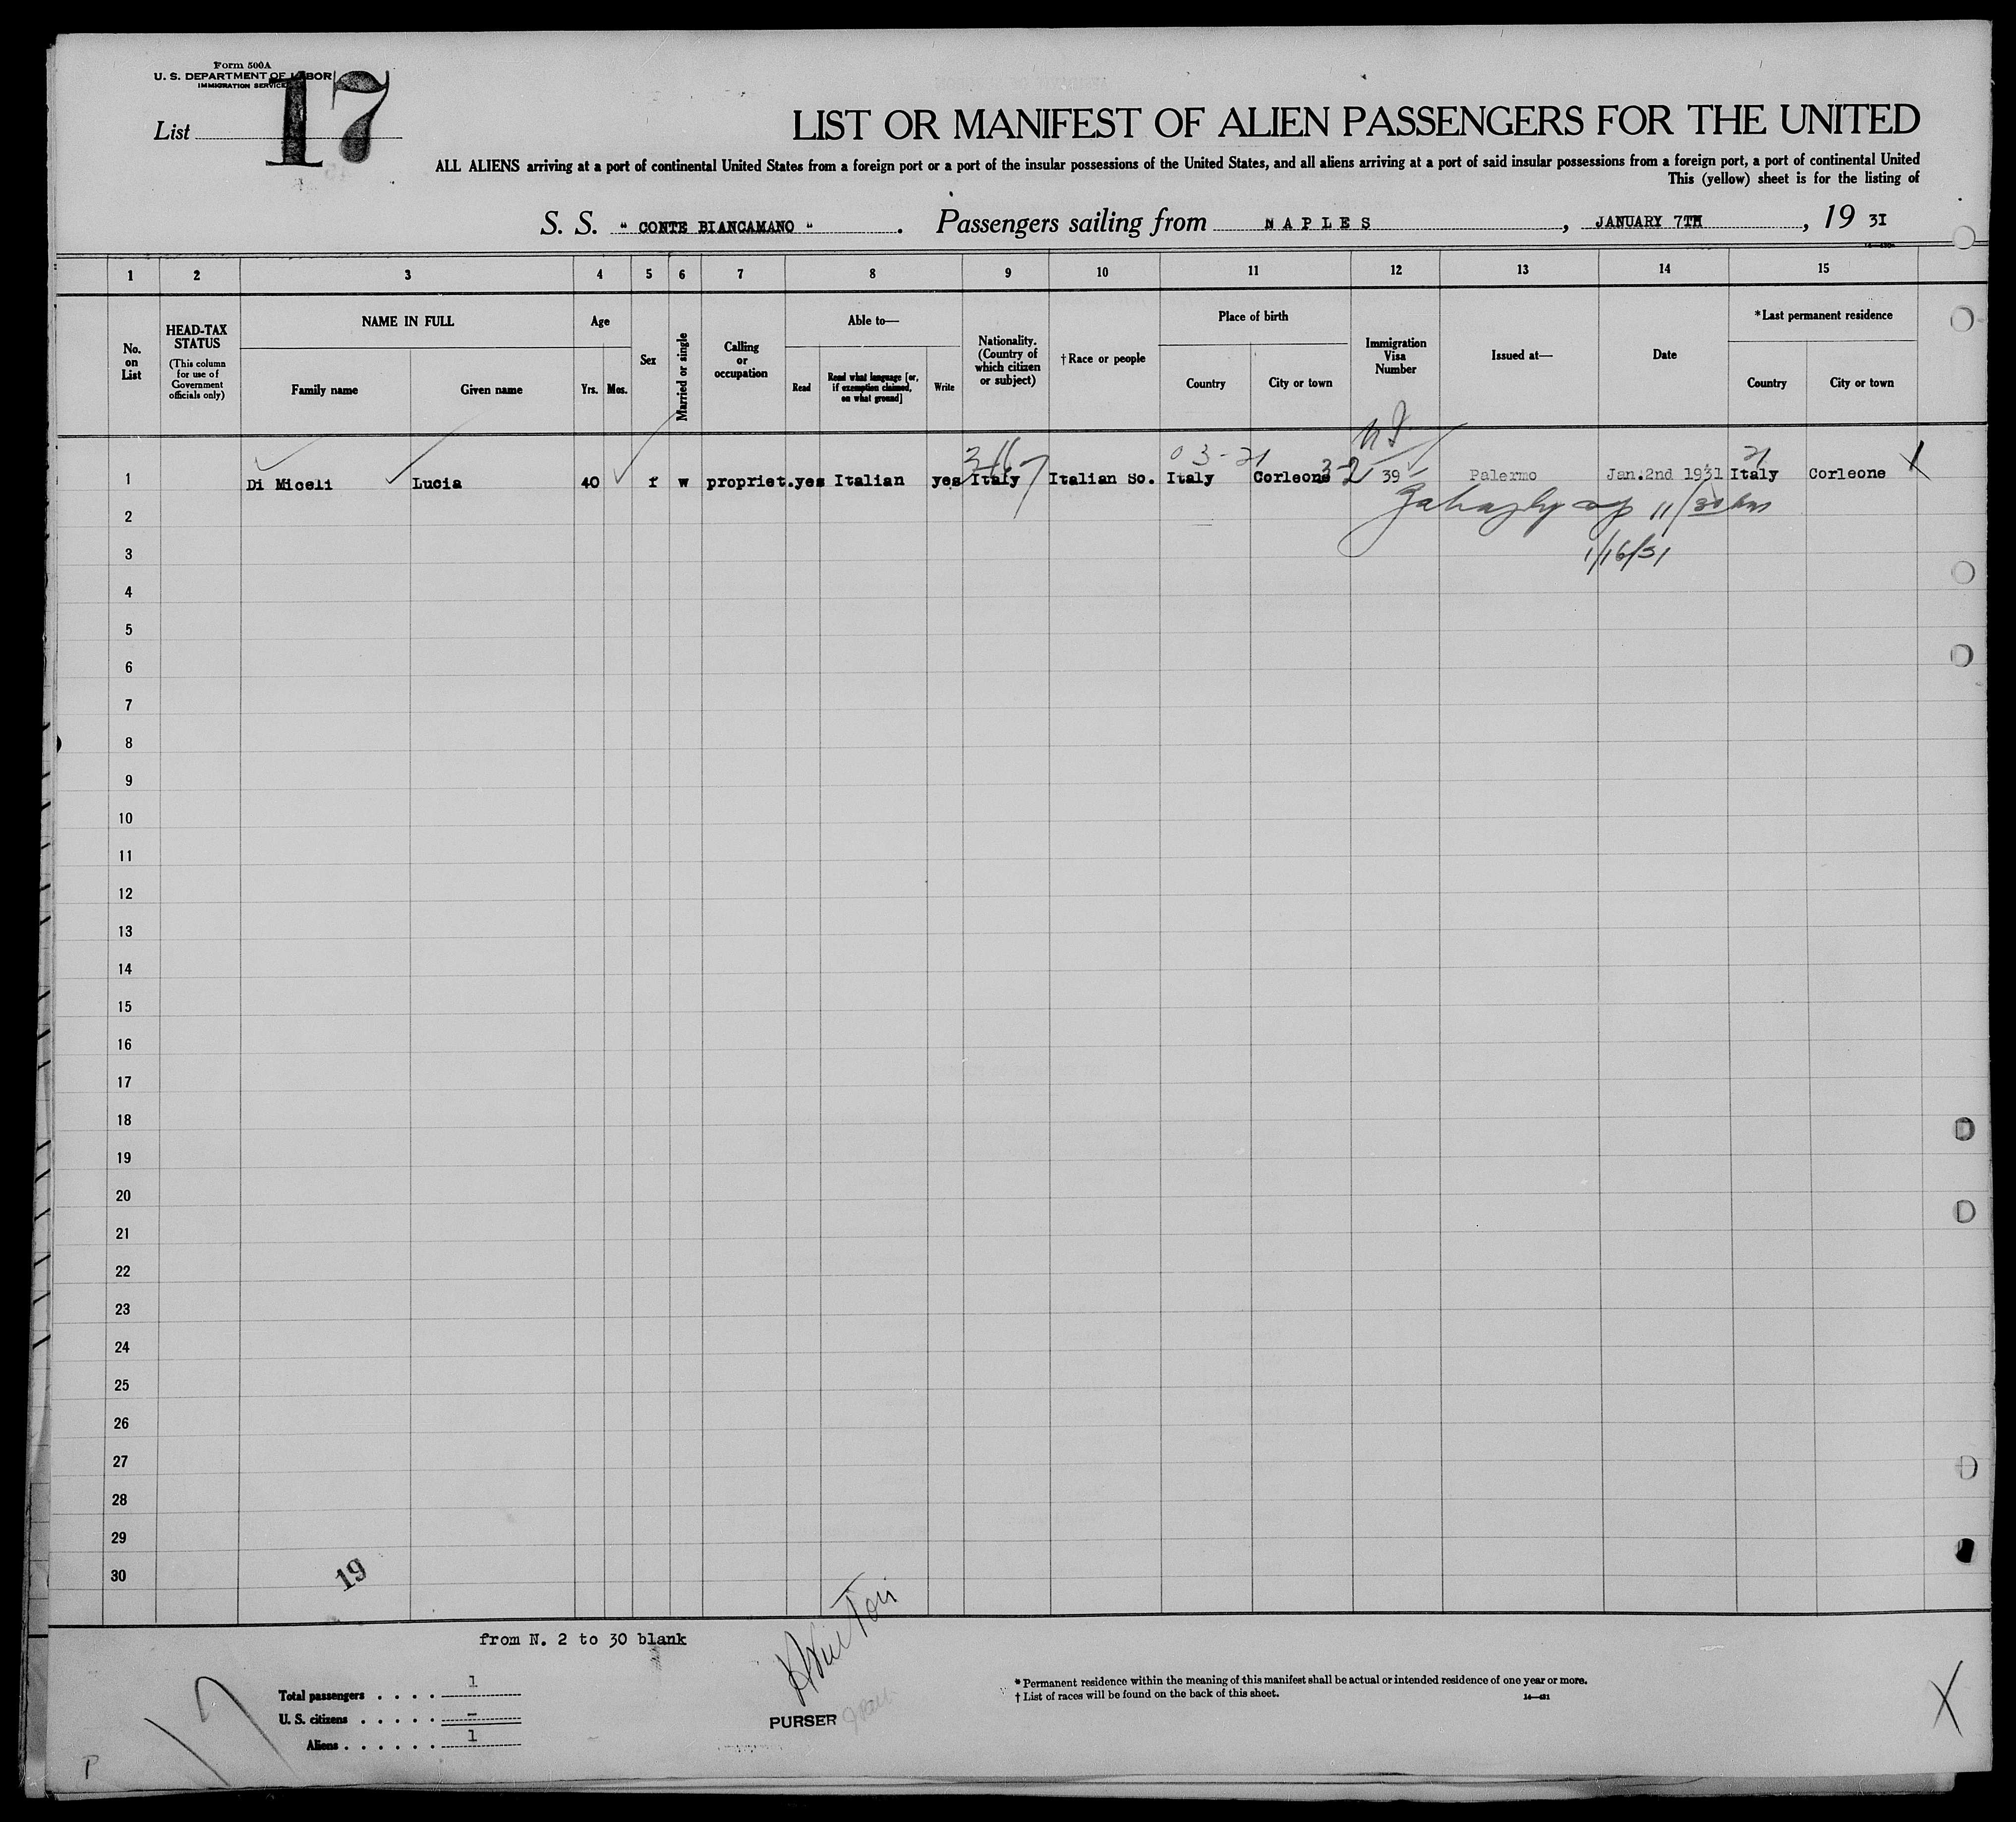 Form 500A
U. S. DEPARTMENT OF LABOR
IMMIGRATION SERVICE
List 17
LIST OR MANIFEST OF ALIEN PASSENGERS FOR THE UNITED
ALL ALIENS arriving at a port of continental United States from a foreign port or a port of the insular possessions of the United States, and all aliens arriving at a port of said insular possessions from a foreign port, a port of continental United
This (yellow) sheet is for the listing of
S. S. " CONTE BIANCAMANO " . Passengers sailing from NAPLES , JANUARY 7TH , 19 31
1 2 3 4 5 6 7 8 9 10 11 12 13 14 15
No. on List
HEAD-TAX STATUS
(This column for use of Government officials only)
NAME IN FULL
Family name Given name
Age
Yrs. Mos.
Sex
Married or single
Calling or occupation
Able to—
Read
Read what language [or, if exemption claimed, on what ground]
Write
Nationality. (Country of which citizen or subject)
†Race or people
Place of birth
Country City or town
Immigration Visa Number
Issued at—
Date
*Last permanent residence
Country City or town
03-21 21
1 Di Miceli Lucia 40 f w propriet. yes Italian yes Italy Italian So. Italy Corleone 39 Palermo Jan.2nd 1931 Italy Corleone
2
3 1/16/31
4
5
6
7
8
9
10
11
12
13
14
15
16
17
18
19
20
21
22
23
24
25
26
27
28
29
30
19
from N. 2 to 30 blank
Total passengers . . . . 1
U. S. citizens . . . . . –
Aliens . . . . . . 1
PURSER
* Permanent residence within the meaning of this manifest shall be actual or intended residence of one year or more.
† List of races will be found on the back of this sheet.
17
P
X